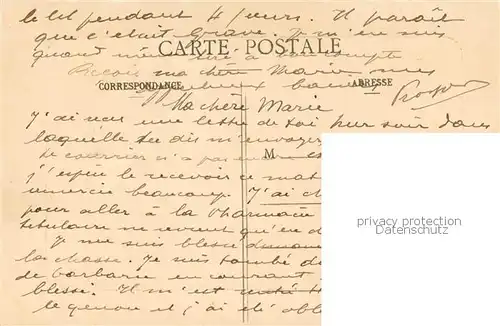 le lit pendant 4 jours. Il paraît
que c'était grave. Je m'en suis
quand même
CARTE POSTALE
Reçois ma chère Marie mes
CORRESPONDANCE
ADRESSE
Ma chère Marie
J'ai reçu une lettre de toi hier soir dans
laquelle tu dis m'envoyer
M
le courrier n'a pas
j'espère le recevoir ce mat
remercie beaucoup. J'ai
pour aller à la Pharmacie
titulaire ne revient qu'en
privacy protection
Datenschutz
Je me suis blessé
la chasse. Je suis tombé
de barbarie en courant
blessé. Il m'est resté
le genou et j'ai été obl